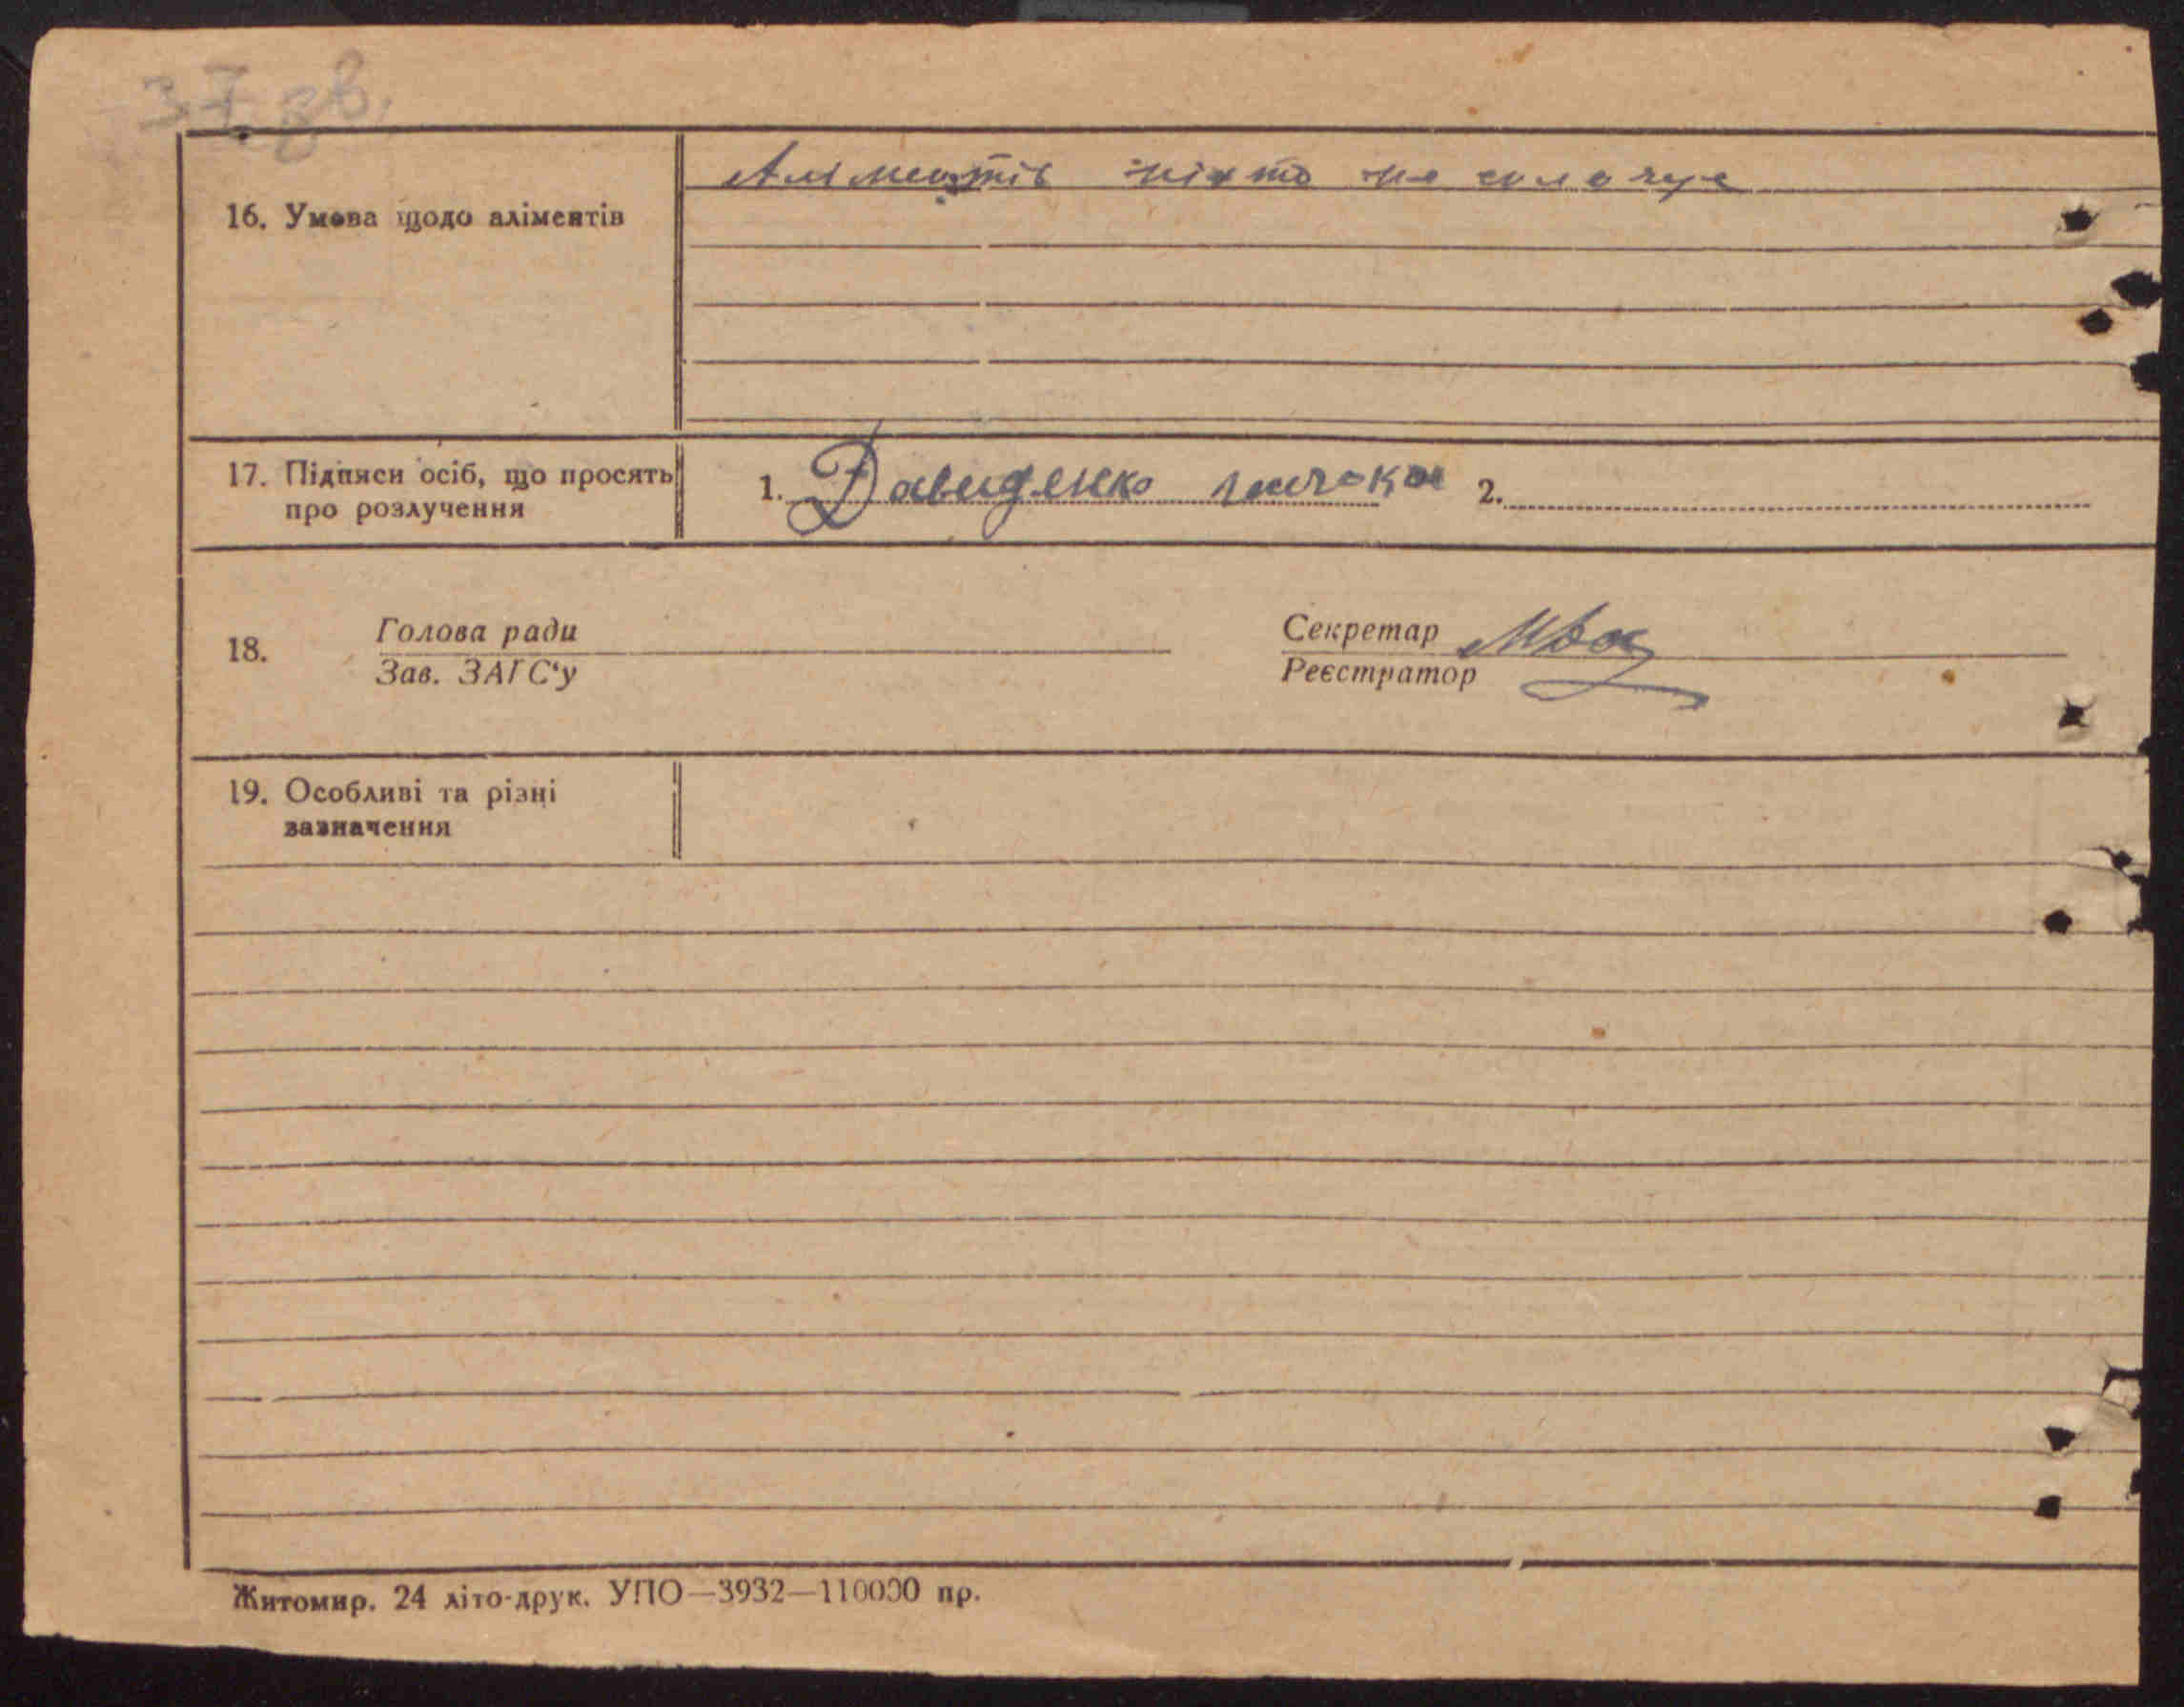 37 зв.
Аліментів ніхто не сплачує
16. Умова щодо аліментів
17. Підписи осіб, що просять
про розлучення
1. Давиденко 2.
18. Голова ради
Зав. ЗАГС'у
Секретар
Реєстратор
19. Особливі та різні
зазначення
Житомир. 24 літо-друк. УПО—3932—110000 пр.